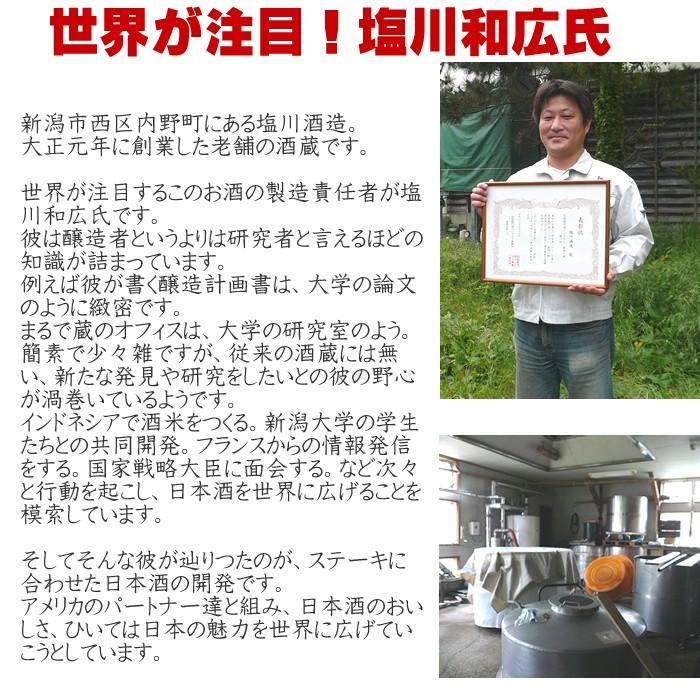 世界が注目！塩川和広氏
新潟市西区内野町にある塩川酒造。
大正元年に創業した老舗の酒蔵です。
世界が注目するこのお酒の製造責任者が塩
川和広氏です。
彼は醸造者というよりは研究者と言えるほどの
知識が詰まっています。
例えば彼が書く醸造計画書は、大学の論文
のように緻密です。
まるで蔵のオフィスは、大学の研究室のよう。
簡素で少々雑ですが、従来の酒蔵には無
い、新たな発見や研究をしたいとの彼の野心
が渦巻いているようです。
インドネシアで酒米をつくる。新潟大学の学生
たちとの共同開発。フランスからの情報発信
をする。国家戦略大臣に面会する。など次々
と行動を起こし、日本酒を世界に広げることを
模索しています。
そしてそんな彼が辿りつたのが、ステーキに
合わせた日本酒の開発です。
アメリカのパートナー達と組み、日本酒のおい
しさ、ひいては日本の魅力を世界に広げてい
こうとしています。
表彰状